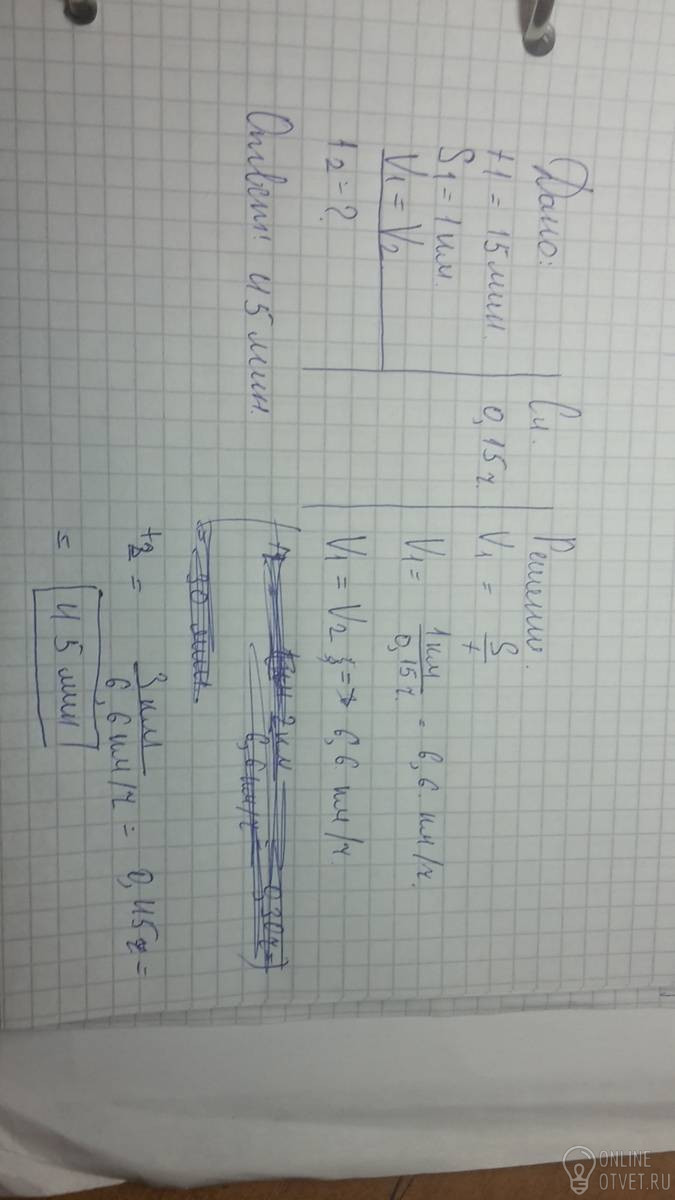 Дано:
t1 = 15 мин.
S1 = 1 км.
V1 = V2
t2 = ?
Си.
0,15 ч.
Решение.
V1 = S/t
V1 = 1 км/0,15 ч. = 6,6. км/ч.
V1 = V2 ; => 6,6 км/ч.
= 30 мин
t2 = 3 км/6,6 км/ч = 0,45 ч =
= 45 мин
Ответ: 45 мин.
ONLINE
OTVET.RU